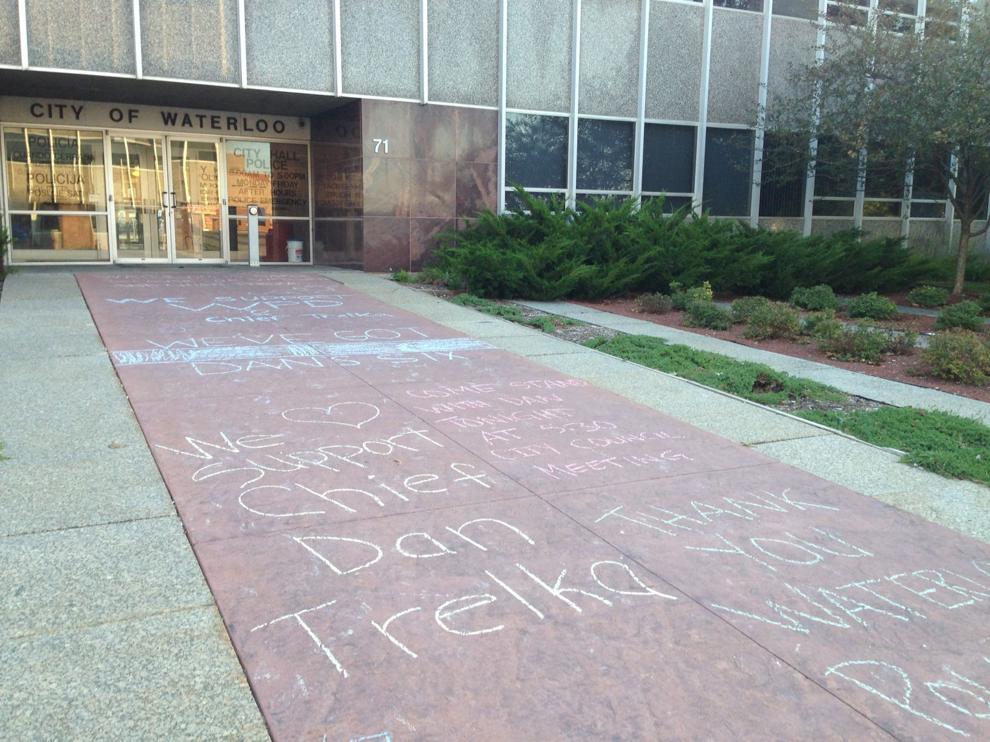 CITY OF WATERLOO
71
POLICIA
POLICIJA
CITY HALL
POLICE
MONDAY-FRIDAY
AFTER HOURS
EMERGENCY
WE SUPPORT
WPD
&
Chief Trelka
WE'VE GOT
DAN'S SIX
COME STAND
WITH DAN
TONIGHT
AT 5:30
CITY COUNCIL
MEETING
WE
Support
Chief
Dan
Trelka
THANK
YOU